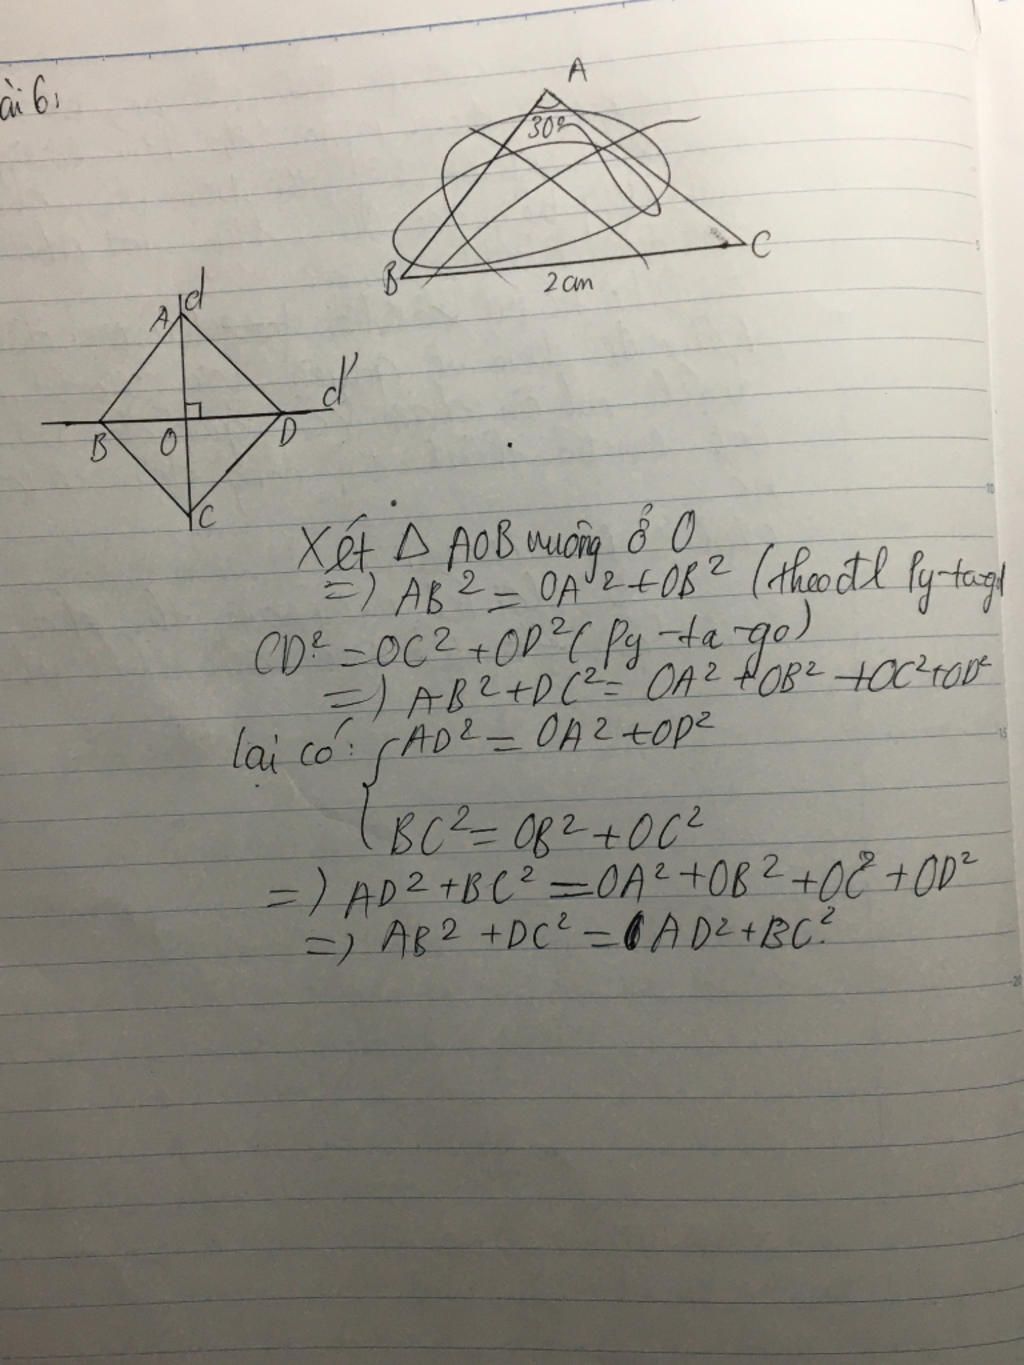 ài 6:
A
30°
B
C
2cm
d
A
d'
B
O
D
C
Xét Δ AOB vuông ở O
=) AB² = OA² + OB² (theo đl Py-ta-go
CD² = OC² + OD² (Py-ta-go)
=) AB² + DC² = OA² + OB² + OC² + OD²
lại có: { AD² = OA² + OD²
BC² = OB² + OC²
=) AD² + BC² = OA² + OB² + OC² + OD²
=) AB² + DC² = AD² + BC².